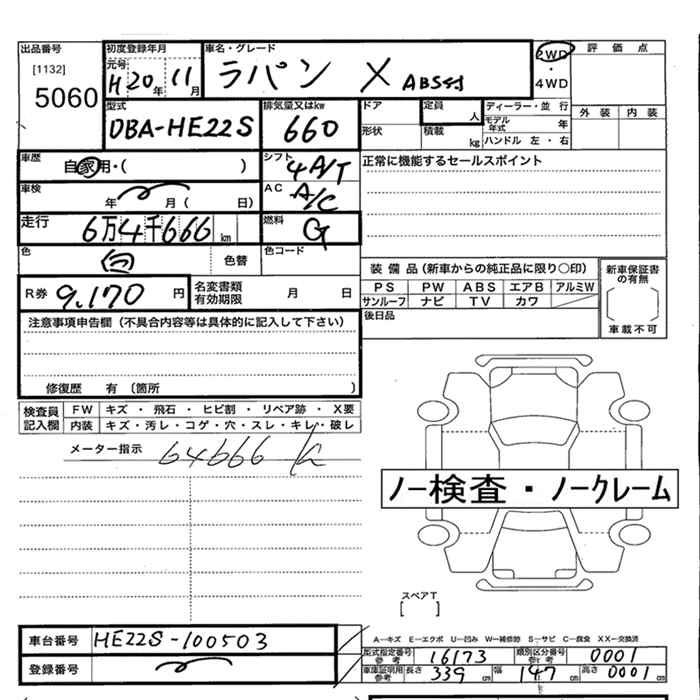 出品番号
[1132]
5060
初度登録年月
元号 H 20 年 11 月
車名・グレード
ラパン X ABS付
2WD
・
4WD
評価点
外装 内装
型式
DBA-HE22S
排気量又はkw
660
ドア
定員 人
形状
積載 kg
ディーラー・並行
モデル年式 年
ハンドル 左・右
車歴
自家用・( )
シフト
4A/T
正常に機能するセールスポイント
車検
年 月( 日)
AC
A/C
走行
6万4千666 km
燃料
G
色
白
色替
色コード
R券 9,170 円
名変書類
有効期限
月 日
装備品(新車からの純正品に限り○印)
PS PW ABS エアB アルミW
サンルーフ ナビ TV カワ
新車保証書
の有無
車載不可
後日品
注意事項申告欄(不具合内容等は具体的に記入して下さい)
修復歴 有 〔箇所 〕
検査員
記入欄
FW キズ・飛石・ヒビ割・リペア跡・X要
内装 キズ・汚レ・コゲ・穴・スレ・キレ・破レ
メーター指示
64666 K
ノー検査・ノークレーム
スペアT
[ ]
車台番号 HE22S-100503
登録番号
A—キズ E—エクボ U—凹み W—補修跡 S—サビ C—腐食 XX—交換済
型式指定番号
参考
16173
類別区分番号
参考
0001
車庫証明用
参考
長さ 339 cm 幅 147 cm 高さ 0001 cm